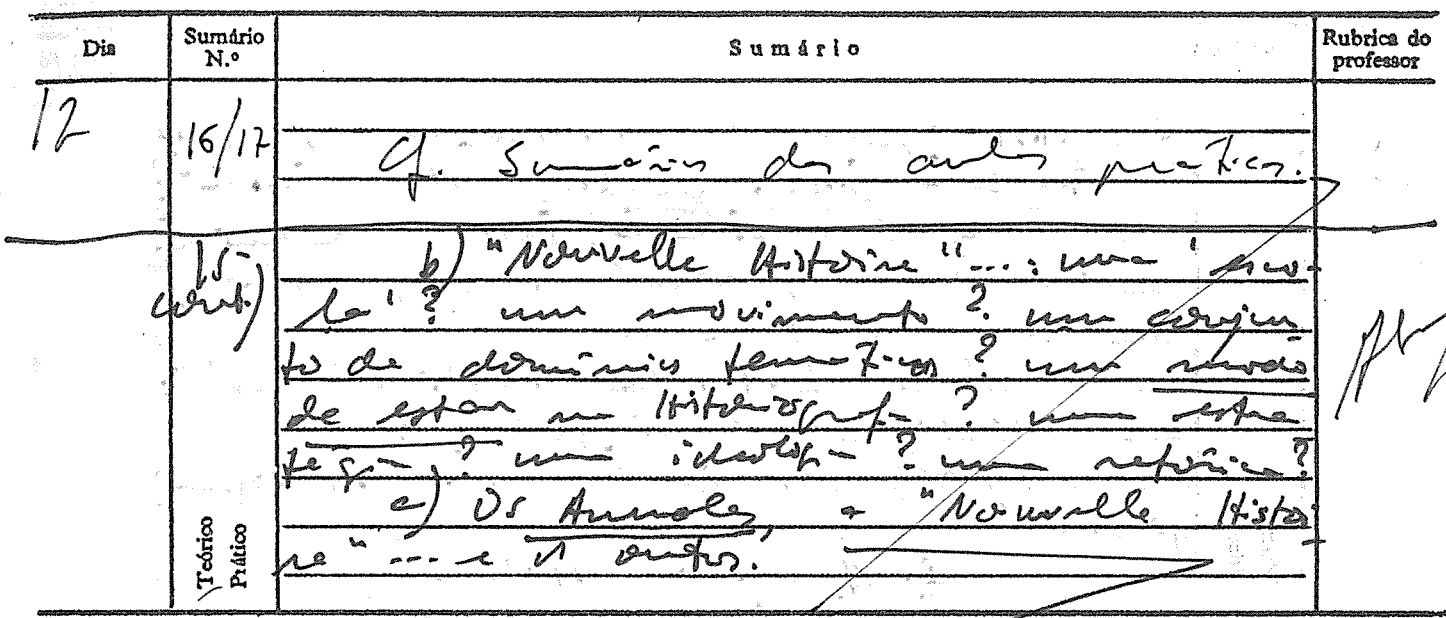 Dia
Sumário N.º
Sumário
Rubrica do professor
12
16/17
Cf. Sumários das aulas práticas.
15 b) "Nouvelle Histoire"...: uma 'esco-
cont.) la'? um movimento? um conjun
to de domínios temáticos? um modo
de estar na Historiografia? uma estra
tégia? uma ideologia? uma retórica?
c) Os Annales, a "Nouvelle Histoi
re" ... e os outros.
Teórico
Prático